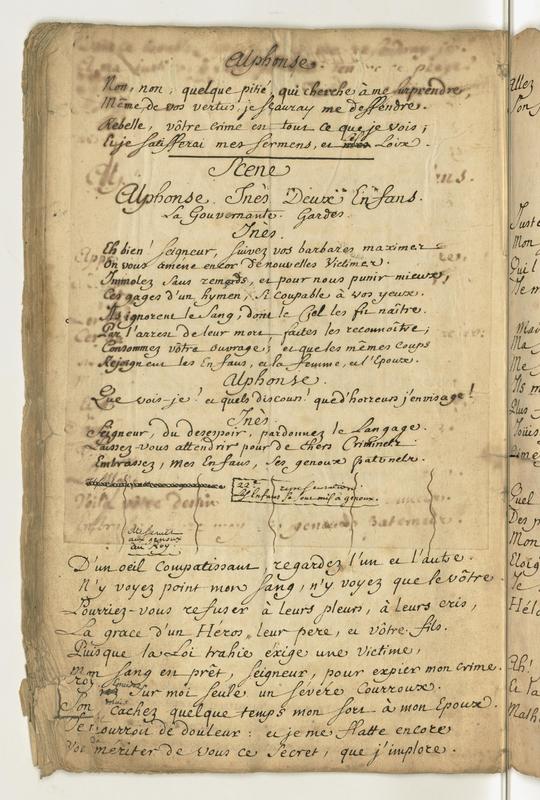 Alphonse.
Non, non, quelque pitié, qui cherche à me surprendre,
Même de vos vertus, je sçauray me deffendre.
Rebelle, vôtre crime est tout ce que je vois;
Et je satisferai mes sermens, et mes Loix.
Scene
Alphonse. Inès. Deux Enfans.
La Gouvernante. Gardes.
Inès.
Eh bien! Seigneur, suivez vos barbares maximes
On vous amene encor de nouvelles Victimes.
Immolez sans remords, et pour nous punir mieux,
Ces gages d'un hymen, si coupable à vos yeux.
Ils ignorent le sang, dont le Ciel les fit naitre.
Par l'arrest de leur mort faites les reconnoitre;
Consommez vôtre ouvrage! et que les mêmes coups
Rejoignent les Enfans, et la femme, et l'Epoux.
Alphonse.
Que vois-je! et quels discours! que d'horreurs j'envisage!
Inès.
Seigneur, du desespoir, pardonnez le langage.
Laissez-vous attendrir pour de chers Criminels
Embrassez, mes Enfans, ses genoux paternels.
les Enfans se sont mis à genoux.
aux genoux
du Roy
D'un oeil compatissant, regardez l'un et l'autre.
N'y voyez point mon sang, n'y voyez que le vôtre.
Pourriez-vous refuser à leurs pleurs, à leurs cris,
La grace d'un Héros, leur pere, et vôtre fils.
Puisque la Loi trahie exige une victime,
Mon sang est prêt, Seigneur, pour expier mon crime.
sur moi seule un sévère Courroux.
cachez quelque temps mon sort à mon Epoux.
mourroit de douleur: et je me flatte encore
meriter de vous ce Secret, que j'implore.